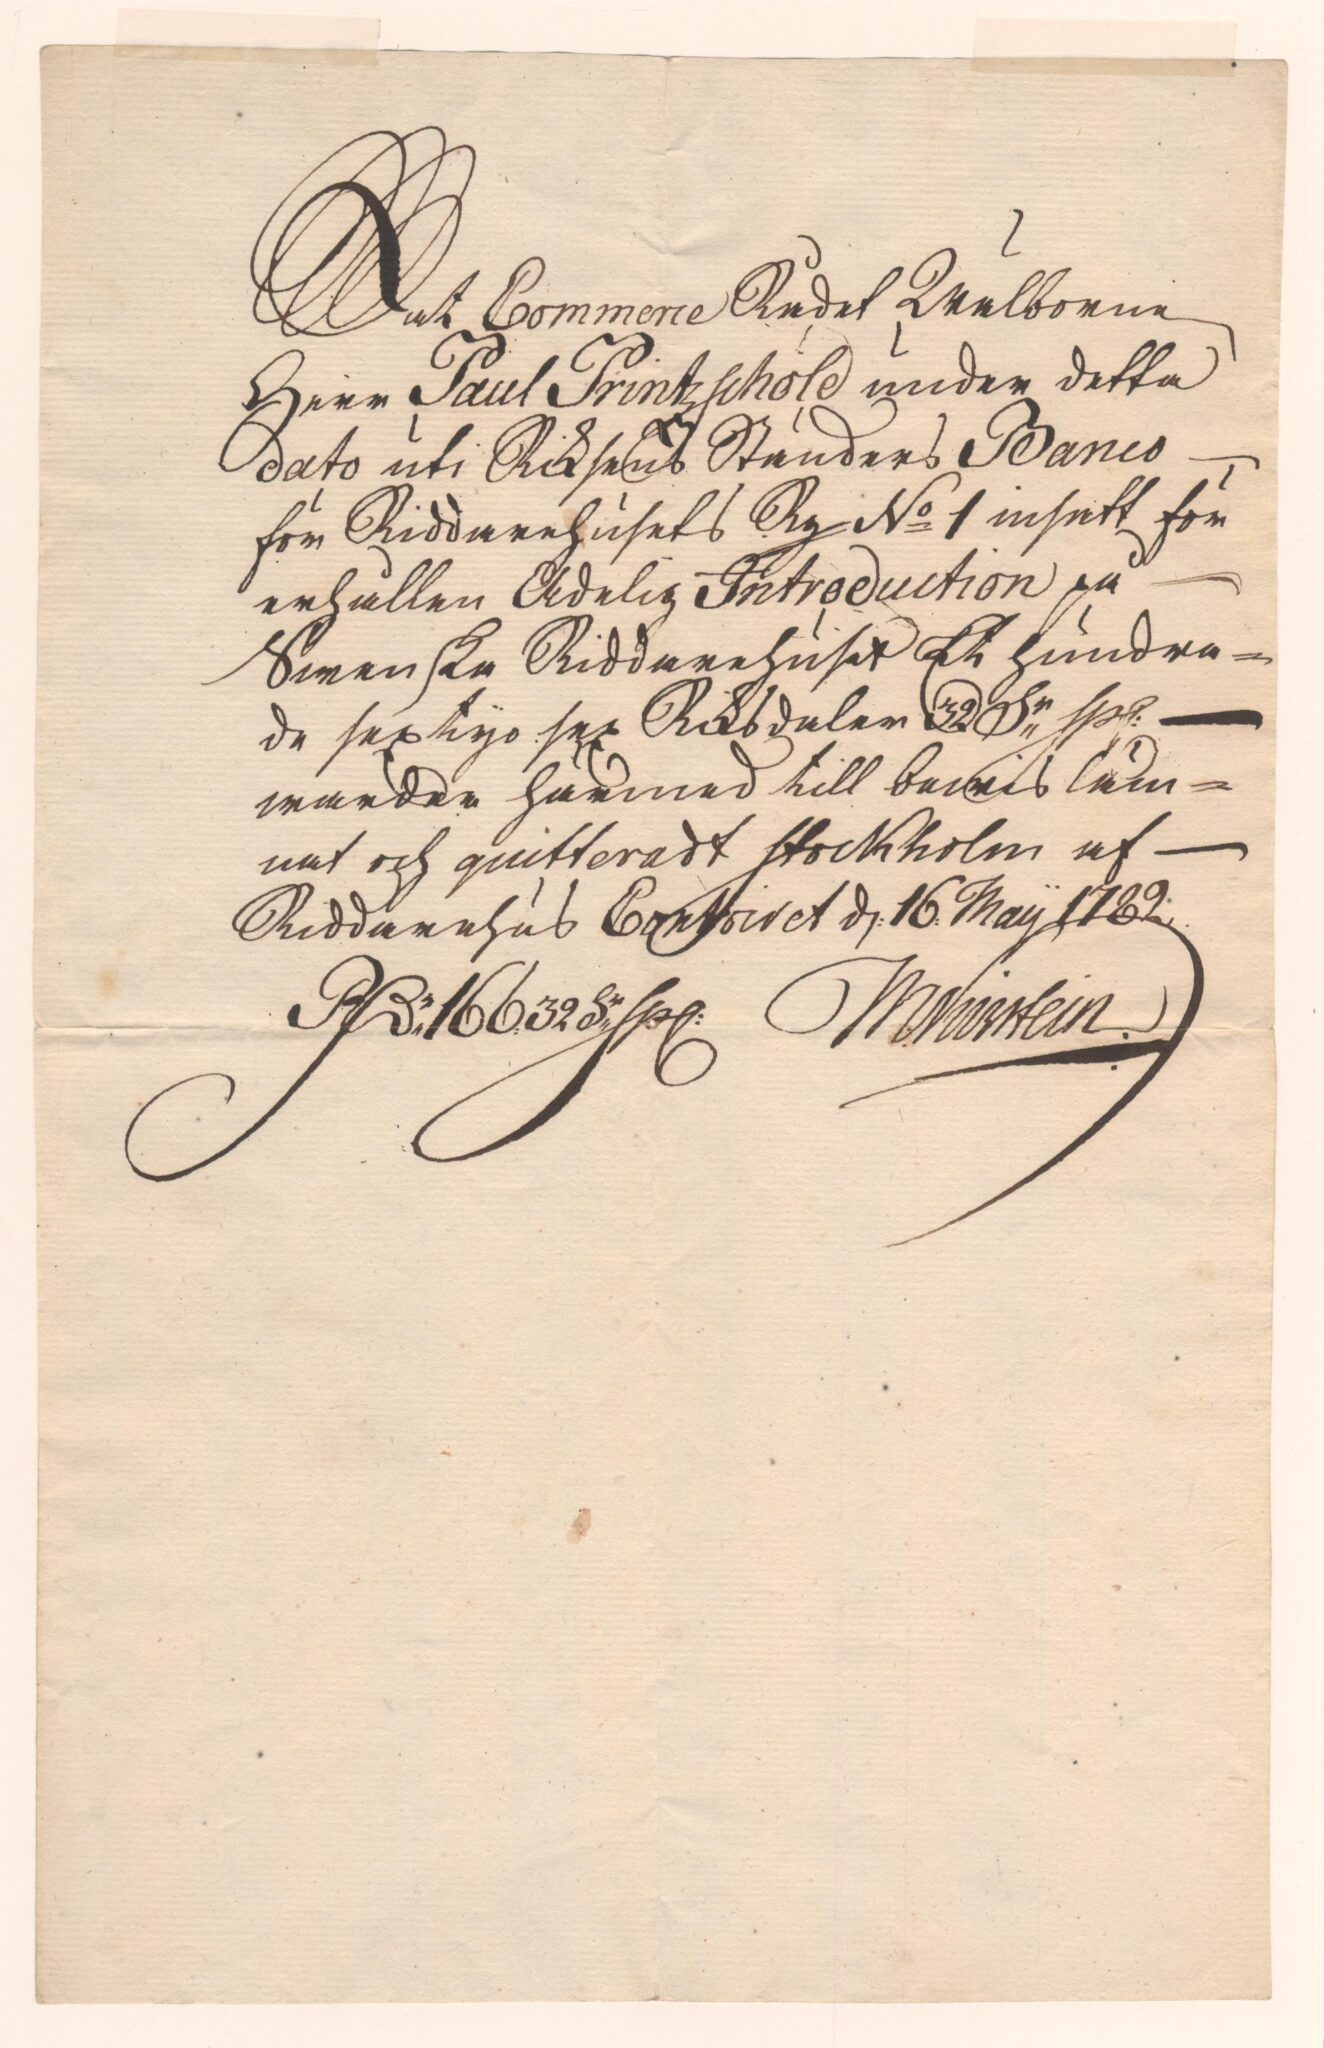 At Commerce Rådet Wälborne
Herr Paul Printzschöld under detta
dato uti Riksens Ständers Banco
för Riddarehusets Rg No 1 insatt för
erhållen Adelig Introduction på
Swenska Riddarehuset Et hundra=
de sextijo sex Riksdaler 32 Sr sp:
warder härmed till bewis läm=
nat och quitteradt Stockholm af
Riddarehus Contoiret d: 16 Maÿ 1782
RDr: 166.32 Sr sp: